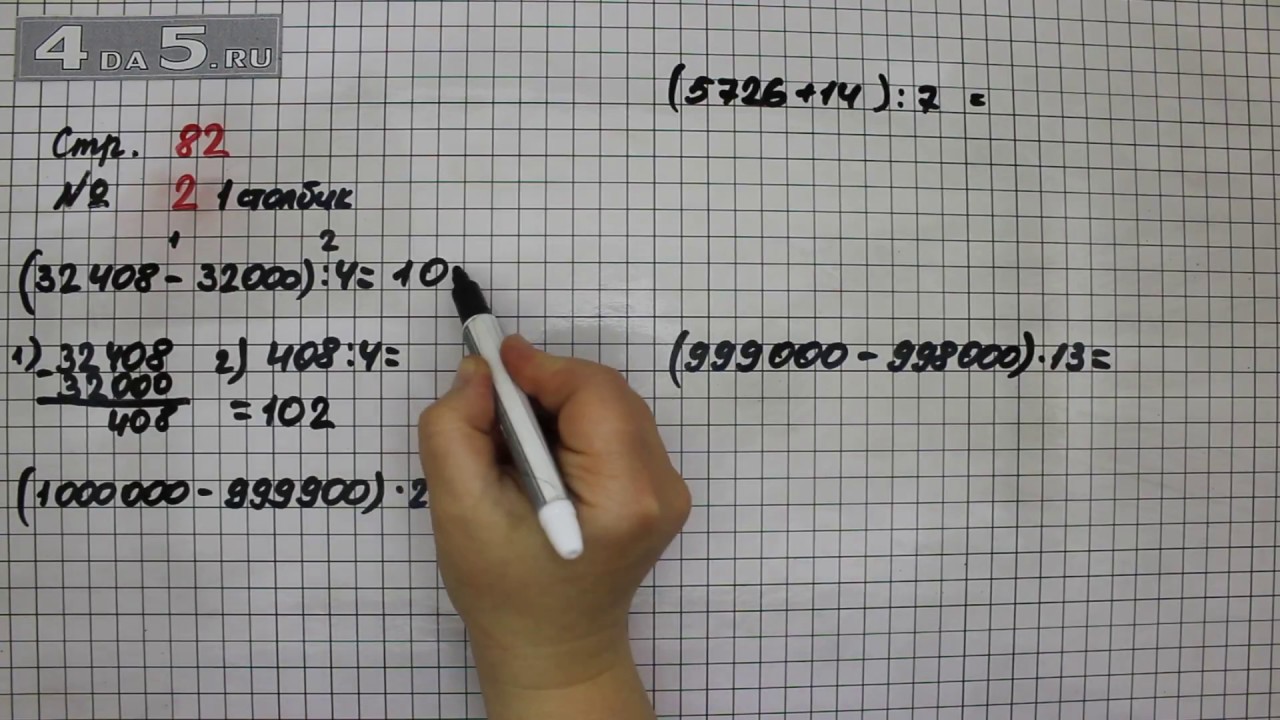 4DA5.RU
Стр. 82
№ 2 1 столбик
1 2
(32 408 - 32000):4= 10
1) - 32 408
32000
408
2) 408:4=
= 102
(1000000 - 999900) · 2
(5726+14):7 =
(999000 - 998000)·13=